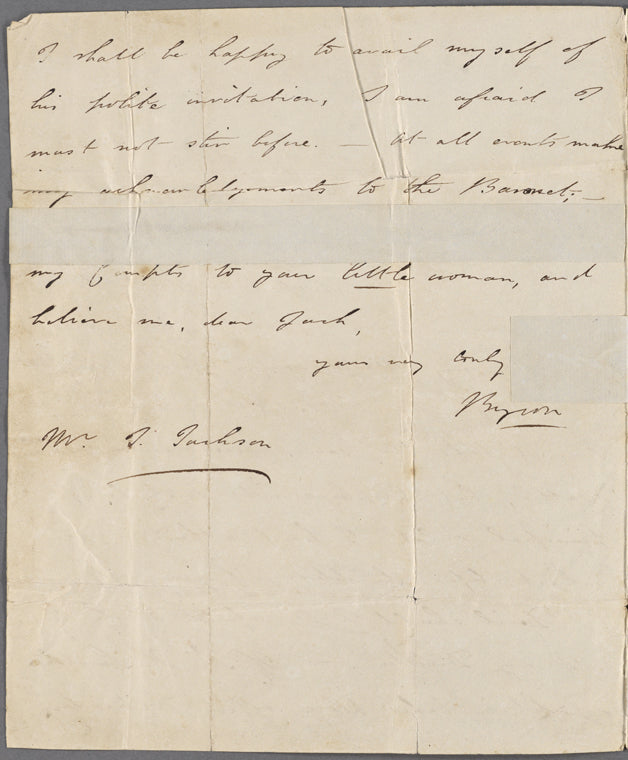 I shall be happy to avail myself of
his polite invitation, I am afraid I
must not stir before. — At all events make
my acknowledgements to the Baronet; —
my Compts to your little woman, and
believe me, dear Jack,
yours very truly
Byron
Mr. J. Jackson